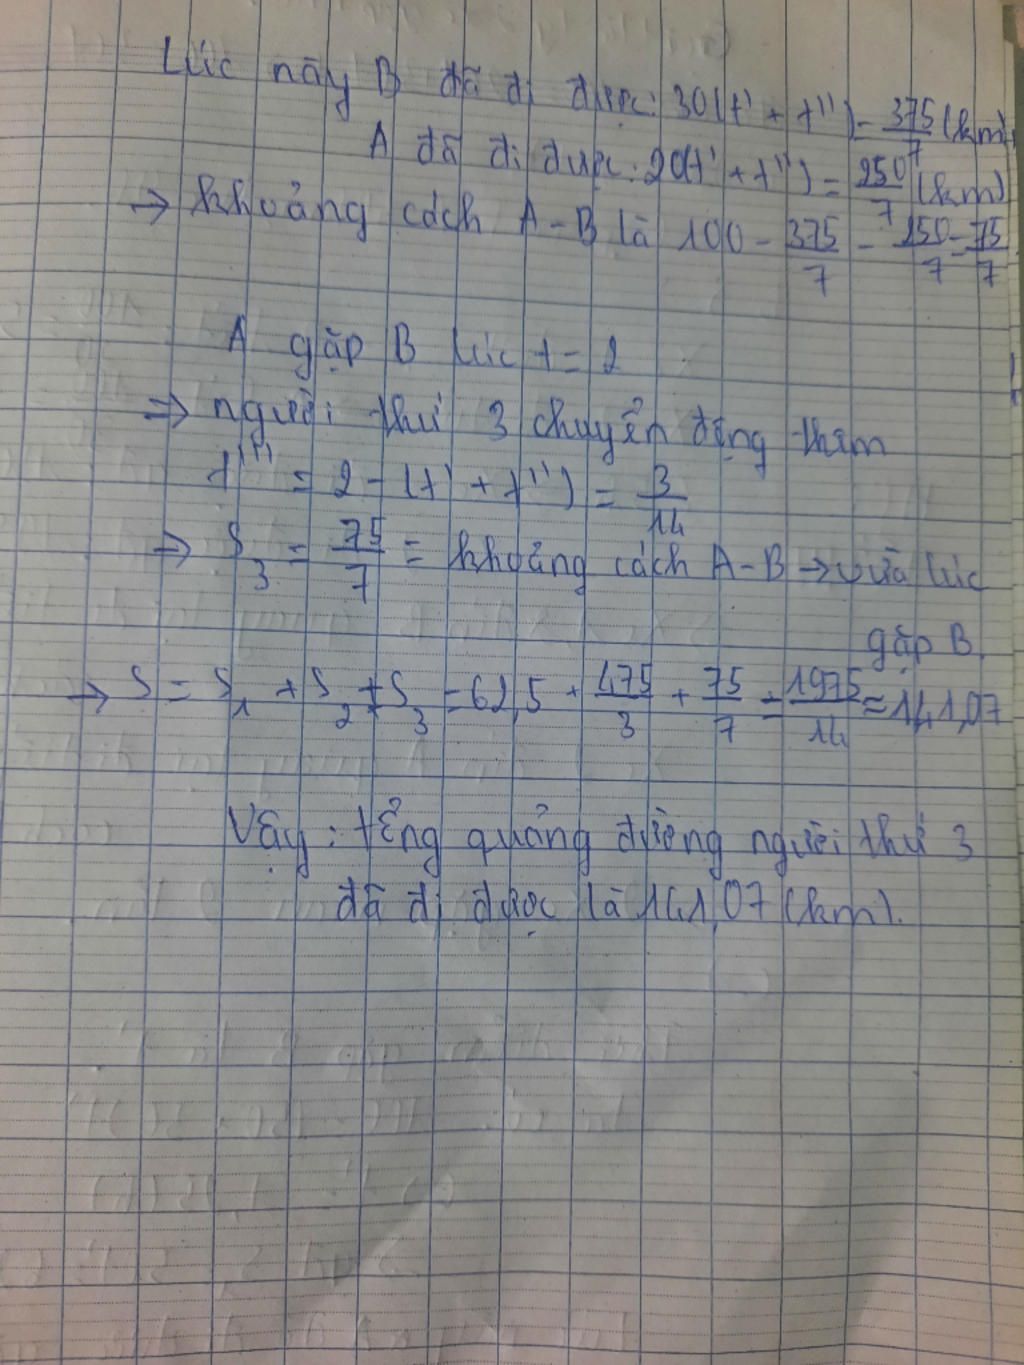 Lúc này B đã đi được: 30(t' + t'') = 375/7 (km)
A đã đi được: 20(t' + t'') = 250/7 (km)
→ khoảng cách A-B là 100 - 375/7 - 250/7 = 75/7
A gặp B lúc t = 2
⇒ người thứ 3 chuyển động thêm
t''' = 2 - (t' + t'') = 3/14
→ S3 = 75/7 = khoảng cách A-B → vừa lúc
gặp B
→ S = S1 + S2 + S3 = 62,5 + 475/3 + 75/7 = 1975/14 ≈ 141,07
Vậy: tổng quảng đường người thứ 3
đã đi được là 141,07 (km).